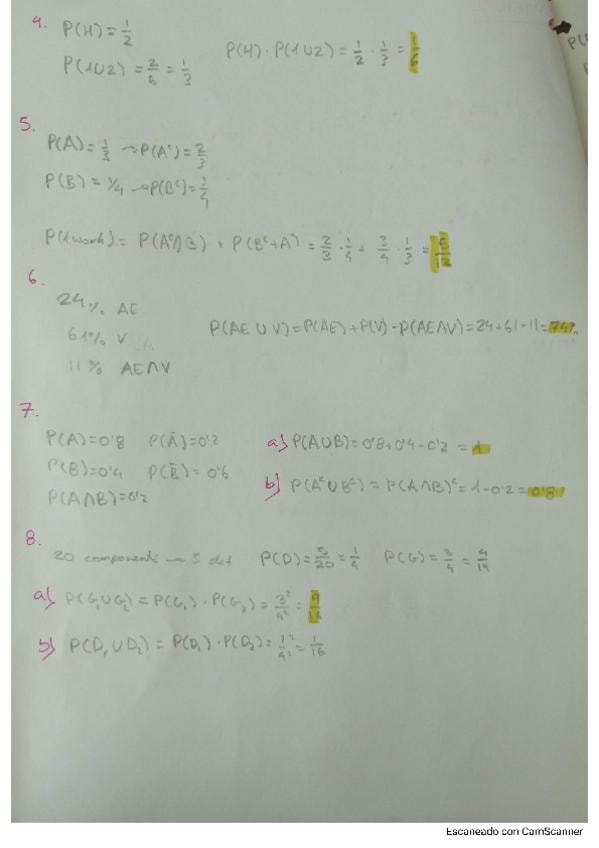 4.
P(H) = 1/2
P(1∪2) = 2/6 = 1/3
P(H) · P(1∪2) = 1/2 · 1/3 = 1/6
5.
P(A) = 1/3 → P(Aᶜ) = 2/3
P(B) = 1/4 → P(Bᶜ) = 1/4
P(1work) = P(Aᶜ∩B) + P(Bᶜ+A) = 2/3 · 1/4 + 3/4 · 1/3 = 5/12
6.
24% AE
61% V
11% AE∩V
P(AE∪V) = P(AE) + P(V) - P(AE∩V) = 24+61-11 = 74%
7.
P(A) = 0'8 P(Ā) = 0'2
P(B) = 0'4 P(B̄) = 0'6
P(A∩B) = 0'2
a) P(A∪B) = 0'8 + 0'4 - 0'2 = 1
b) P(Aᶜ∪Bᶜ) = P(A∩B)ᶜ = 1 - 0'2 = 0'8
8.
20 components → 5 def P(D) = 5/20 = 1/4 P(G) = 3/4 =
a) P(G₁∪G₂) = P(G₁) · P(G₂) = 3²/4² = 9/16
b) P(D₁∪D₂) = P(D₁) · P(D₂) = 1²/4² = 1/16
Escaneado con CamScanner